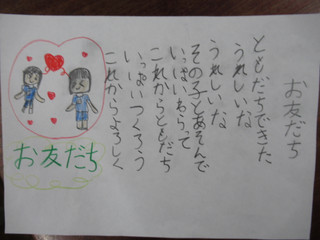 お友だち
ともだちできた
うれしいな
うれしいな
その子とあそんで
いっぱいわらって
これからともだち
いっぱいつくろう
これからよろしく
お友だち